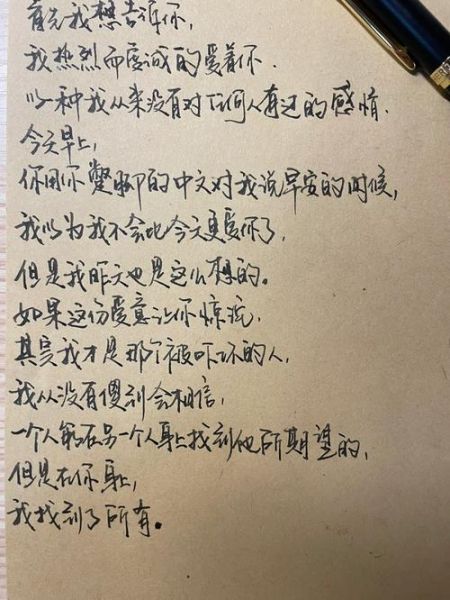 首先我想告诉你,
我热烈而虔诚的爱着你.
以一种我从来没有对任何人有过的感情.
今天早上,
你用你蹩脚的中文对我说早安的时候,
我以为我不会比今天更爱你了,
但是我昨天也是这么想的。
如果这份爱意让你惊慌,
其实我才是那个被吓坏的人,
我从没有傻到会相信,
一个人能在另一个人身上找到他所期望的,
但是在你身上,
我找到了所有。